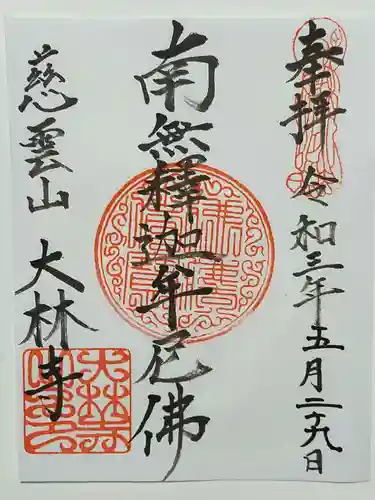 奉拝
令和三年五月二十九日
南無釋迦牟尼佛
慈雲山 大林寺